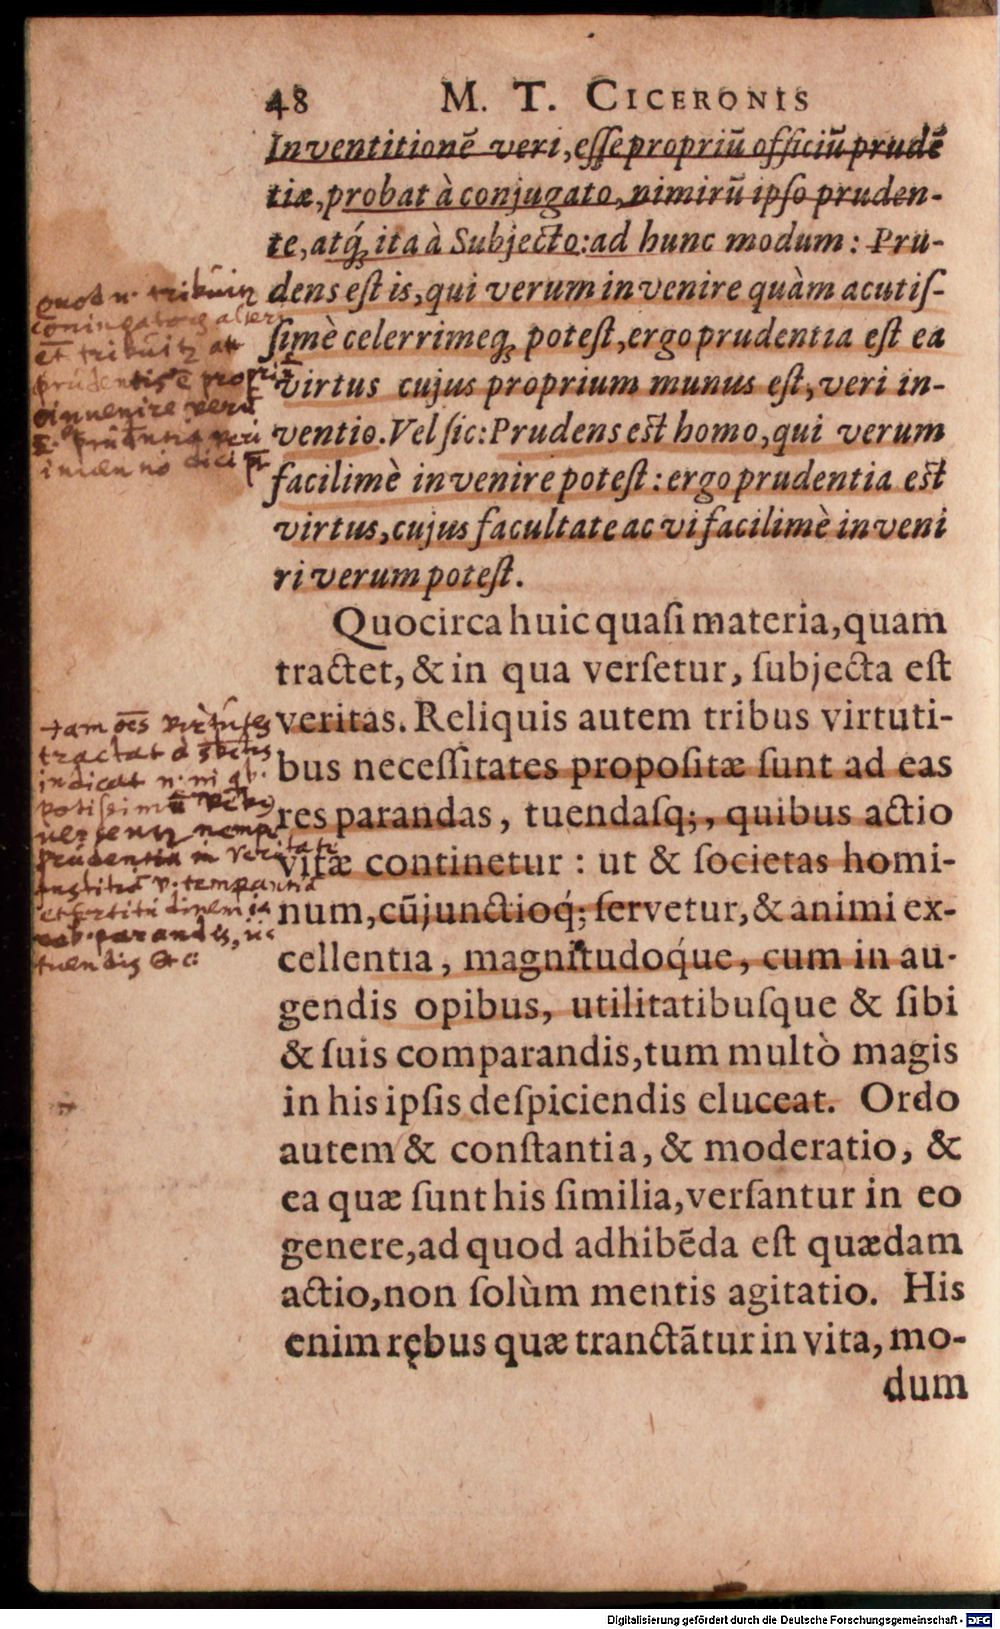 48 M. T. CICERONIS
Inventitionē veri, eſſe propriū officiū prudē
tiæ, probat à conjugato, nimirū ipſo pruden-
te, atq́; ita à Subjecto: ad hunc modum: Pru-
dens eſt is, qui verum invenire quàm acutiſ-
ſimè celerrimeq; poteſt, ergo prudentia eſt ea
virtus cujus proprium munus eſt, veri in-
ventio. Vel ſic: Prudens est homo, qui verum
facilimè invenire poteſt: ergo prudentia est
virtus, cujus facultate ac vi facilimè inveni
ri verum poteſt.
Quocirca huic quaſi materia, quam
tractet, & in qua verſetur, ſubjecta eſt
veritas. Reliquis autem tribus virtuti-
bus neceſſitates propoſitæ ſunt ad eas
res parandas, tuendaſq;, quibus actio
vitæ continetur: ut & ſocietas homi-
num, cūjunctioq́; ſervetur, & animi ex-
cellentia, magnitudoq́ue, cum in au-
gendis opibus, utilitatibuſque & ſibi
& ſuis comparandis, tum multò magis
in his ipſis deſpiciendis eluceat. Ordo
autem & conſtantia, & moderatio, &
ea quæ ſunt his ſimilia, verſantur in eo
genere, ad quod adhibēda eſt quædam
actio, non ſolùm mentis agitatio. His
enim rębus quæ tranctātur in vita, mo-
dum
prudentis ē
invenire verū
tam oēs
tractat
indicat
prudentia in veritate
parandis,
tuendis &c:
Digitalisierung gefördert durch die Deutsche Forschungsgemeinschaft - DFG